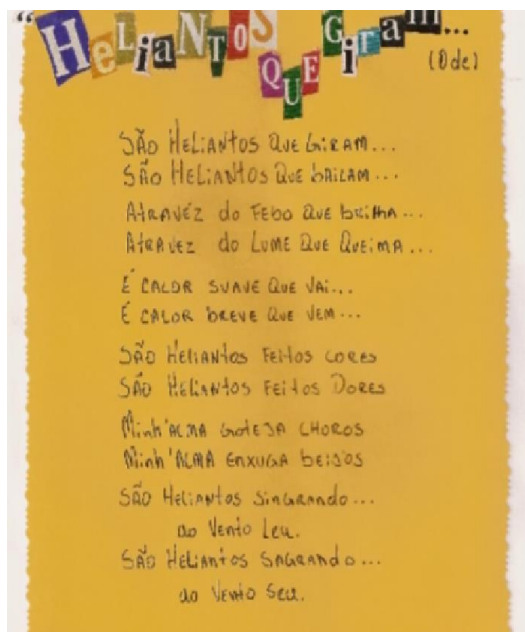 "HeLiaNTOS QUE Giram...
(Ode)
SÃO HeLiANtOS QuE GiRAM...
SÃO HeLiANtOS QuE bAiLAM...
AtRAVéZ do FEbO QuE bRiLHA...
AtRAVEZ do LUME QuE QuEiMA...
É CALOR SUAVE QuE VAi...
É CALOR bREVE QuE VEM...
SÃO HeLiANtOS FEitOS CORES
SÃO HeLiANtOS FEitOS DORES
Minh'ALMA GOtEJA CHOROS
Minh'ALMA ENXUGA bEiJOS
SÃO HeLiANtOS SiNGRANdO...
ao VENtO LEU.
SÃO HeLiANtOS SAGRANdO...
ao VENtO SEU.